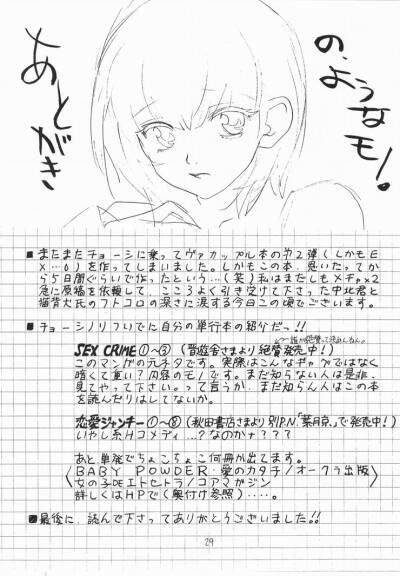 あとがき
の、ようなモノ。
■またまたチョーシに乗ってヴァカップル本の第2弾(しかもE
X…6)を作ってしまいました。しかもこの本、思いたってか
ら5日間ぐらいで作ったという…(笑)私はまだしもメチャ×2
急に原稿を依頼して、こころよく引き受けて下さった中北君と
猫背犬氏のフトコロの深さに涙する今日この頃でございます。
■チョーシノリついでに自分の単行本の紹介だっ!!
SEX CRIME①~③(晋遊舎さまより絶賛発売中!)
このマンガの元ネタです。実際はこんなギャグではなく
暗くて重い?内容のモノです。まだ知らない人は是非、
見てやって下さい。って言うか、まだ知らん人はこの本
を読んだりはしてないか。
恋愛ジャンキー①~⑧(秋田書店さまより別P.N.「葉月京」で発売中!)
いやし系Hコメディ…?なのかナ???
あと単発でちょこちょこ何冊か出てます。
BABY POWDER・愛のカタチ/オークラ出版
女の子DEエトセトラ/コアマガジン
詳しくはHPで(奥付け参照)‥‥。
■最後に、読んで下さってありがとうございました!!
29